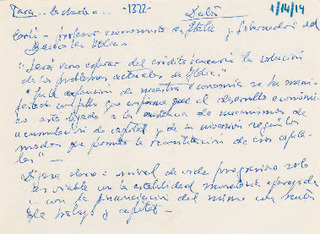 Para... -1322- Datos 1/14/14
Carli - profesor economista de Italia y Gobernador del
Banco de Italia -
"Será vano esperar del crédito la solución
de los problemas actuales de Italia."
"La expansión de nuestra economía se ha mani-
festado con fallos que confirma que el desarrollo económi-
co está ligado a la existencia de mecanismos de
acumulación de capital y de su inversión según los
modos que permita la reconstitución de esos capita-
les" —
Dijese claro: nivel de vida progresivo solo
es viable con la estabilidad monetaria apoyada
con la financiación del mismo con
de trabajo y capital -